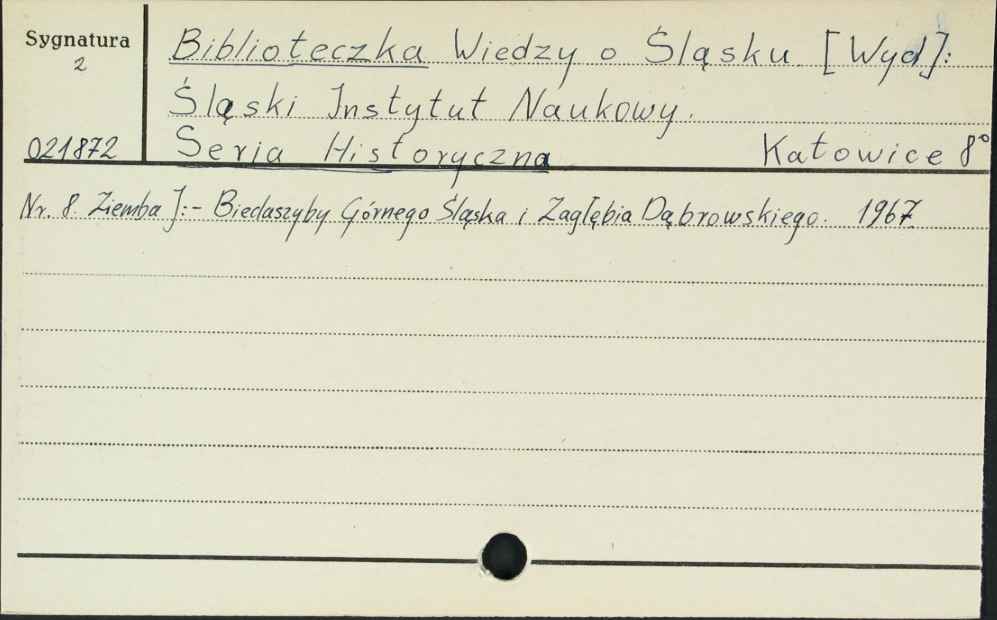 Sygnatura
2
021872
Biblioteczka Wiedzy o Śląsku. [Wyd]:
Śląski Instytut Naukowy.
Seria Historyczna Katowice 8°
Nr. 8. Ziemba J:- Biedaszyby Górnego Śląska i Zagłębia Dąbrowskiego. 1967.